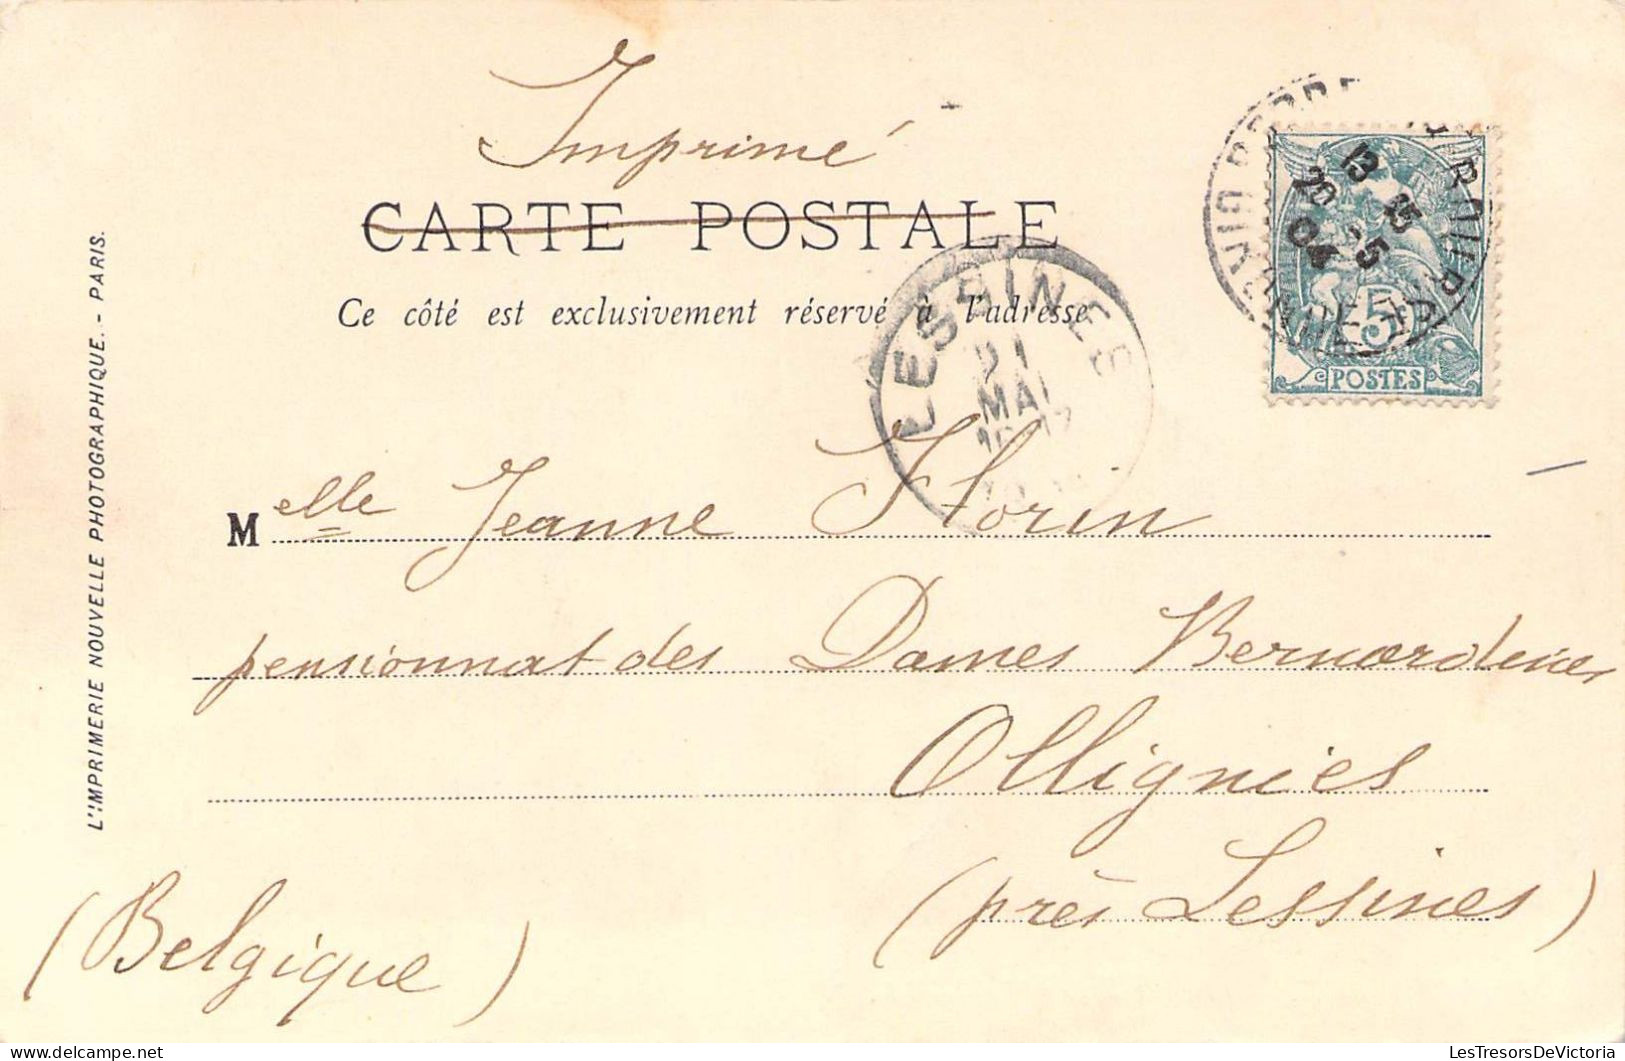 Imprimé
CARTE POSTALE
Ce côté est exclusivement réservé à l'adresse
LESSINES
21
MAI
13 15
20 5
04
5
POSTES
Melle Jeanne Florin
pensionnat des Dames Bernardines
Ollignies
(près Lessines)
(Belgique)
L'IMPRIMERIE NOUVELLE PHOTOGRAPHIQUE. - PARIS.
LesTresorsDeVictoria